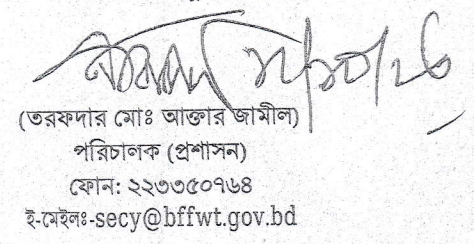 (তরফদার মোঃ আক্তার জামীল)
পরিচালক (প্রশাসন)
ফোন: ২২৩৩৫০৭৬৪
ই-মেইলঃ-secy@bffwt.gov.bd